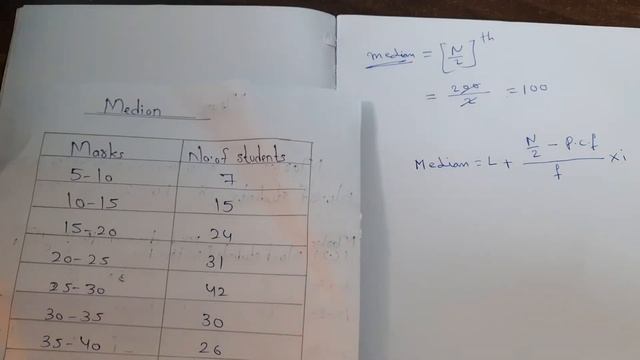 Median
Marks No. of students
5-10 7
10-15 15
15-20 24
20-25 31
25-30 42
30-35 30
35-40 26
median = [N/2]th
= 200/2 = 100
Median = L + (N/2 - p.c.f)/f × i